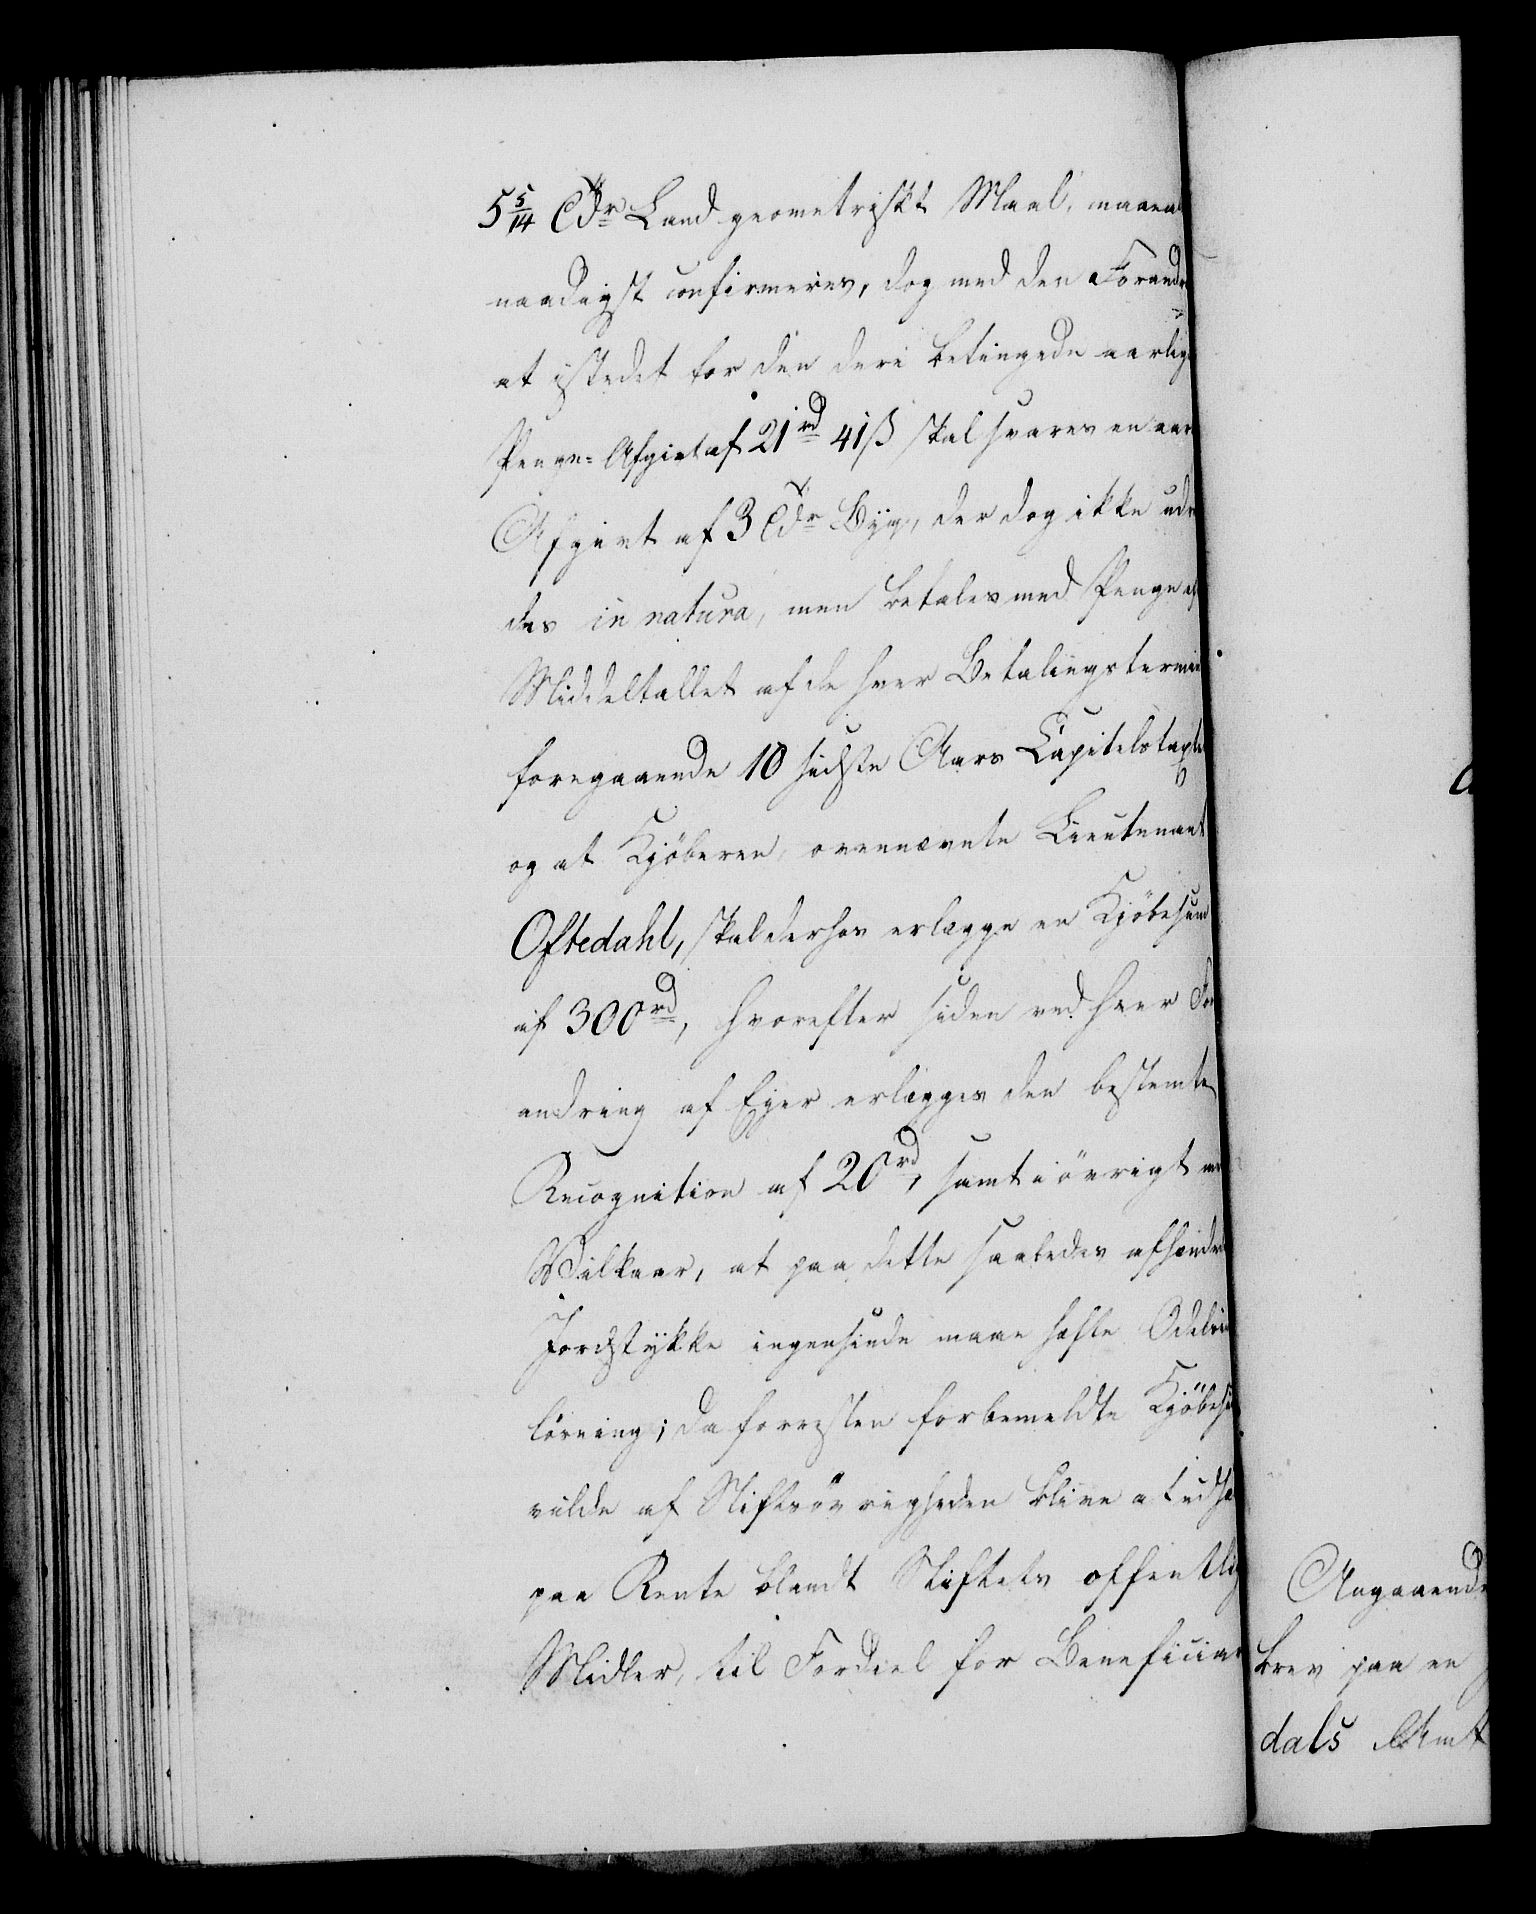 5 5/14 Tdr Land geometriskt Maal, maae al
naadigst confirmeres, dog med den Forandr
at istedet for den deri betingede aarlig
Penge-Afgivt af 21 rd 41 ß skal svares en aar
Afgivt af 3 Tdr Byg, der dog ikke udre
des in natura, men betales med Penge ef
Middeltallet af de hver Betalingstermin
foregaaende 10 sidste Aars Capitelstaxte
og at Kjöberen, ovennævnte Lieutenant
Oftedahl, skal derhos erlægge en Kjöbesum
af 300 rd, hvorefter siden ved hver For
andring af Ejer erlægges den bestemte
Recognition af 20 rd, samt iövrigt
Vilkaar, at paa dette saaledes afhændede
Jordstykke ingensinde maae hefte Odels
lösning; da forresten forbemeldte Kjöbesu
vilde af Stiftsövrigheden blive at udsæ
paa Rente blandt Stiftets offentlig
Midler, til Fordeel for Beneficiar
Angaaende
brev paa en
dals Amt